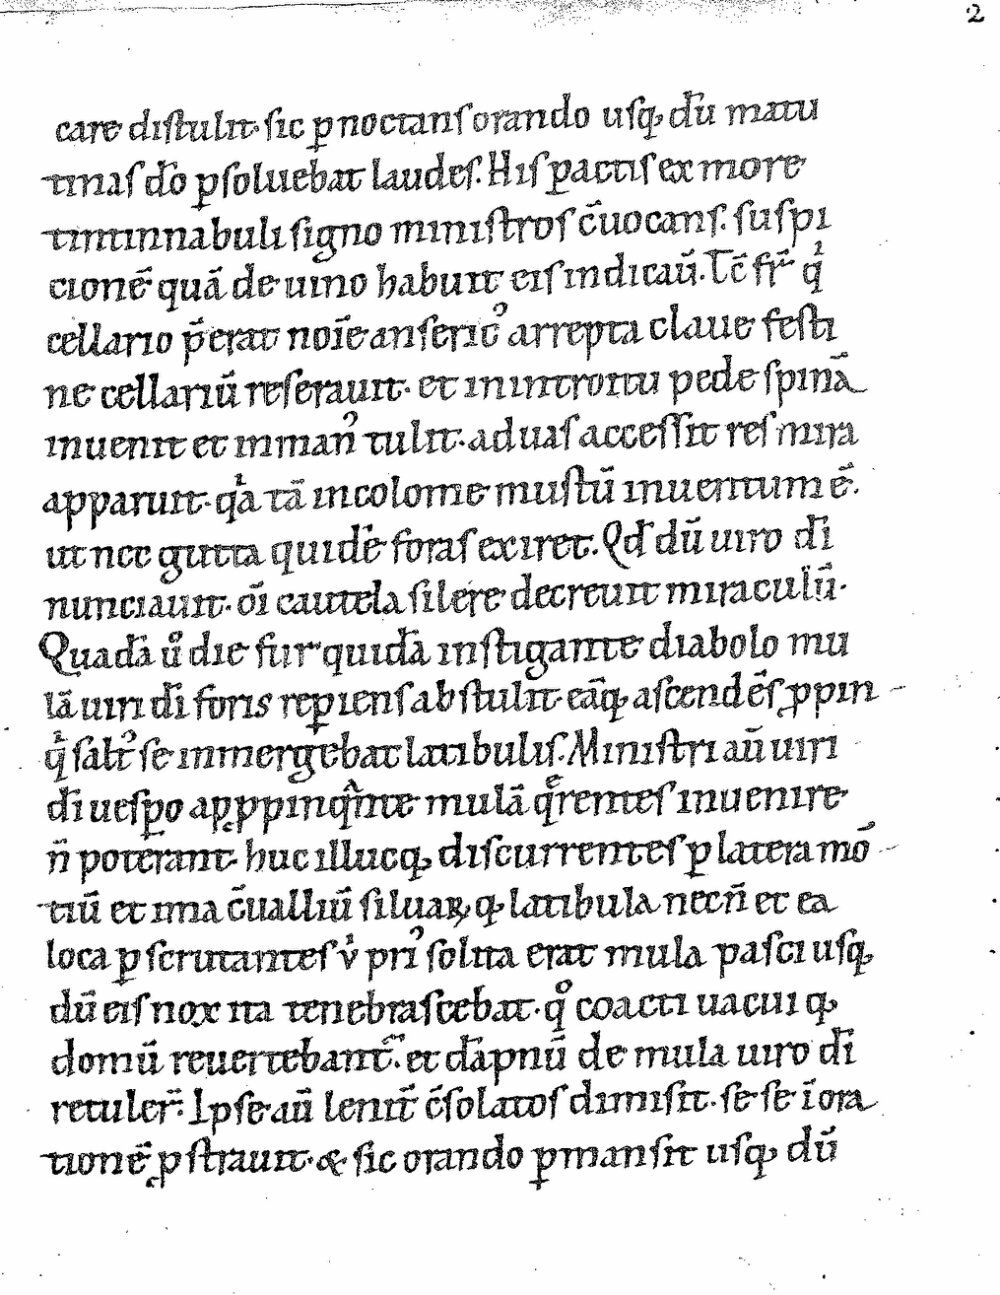 2
care diſtulit· ſic ꝑnoctanſ orando uſq; dũ matu
tinaſ do̅ ꝑſoluebat laudeſ. Hiſ ꝑactiſ ex more
tintinnabuli ſigno miniſtroſ c̃uocanſ. ſuſpi
cionē quã de uino habuit eiſ indicaũ. Tc̃ fr̃ qͥ
cellario p̃erat noĩe anſericꝰ arrepta claue feſti
ne cellariũ reſerauit· et in introitu pede ſpinã
inuenit et in manꝰ tulit· ad uaſ acceſſit reſ mira
apparuit· qͥa tã incolome muſtũ inuentum ē.
ut nec gutta quidē foraſ exiret. Qd̃ dũ uiro dı̃
nunciauit· oı̃ cautela ſilere decreuit miraculũ·
Quadã ů die fur quidã inſtigante diabolo mu
lã uiri dı̃ foris reꝑienſ abſtulit· eãq; aſcendẽſ ꝓpin
qͥ ſaltꝰ ſe inmergebat latibuliſ. Miniſtri aũ uiri
dı̃ ueſꝑo apꝓpinqͣnte mulã q̃renteſ inuenire
ñ poterant· huc illucq; diſcurrenteſ ꝑ latera mõ
tiũ et ima c̃ualliũ ſiluaꝝ q; latibula necñ et ea
loca ꝑſcrutanteſ vͥ priꝰ ſolita erat mula paſci uſq;
dũ eiſ nox ita tenebraſcebat· qͦ coacti uacui q;
domũ reuertebantᷣ. et dãpnũ de mula uiro dı̃
retuler̃. Ipſe aũ lenit̃ c̃ſolatoſ dimiſit· ſe ſe ĩ ora
tionẽ ꝓſtrauit· & ſic orando ꝑmanſit uſq; dũ